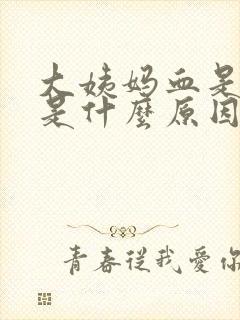 大姨妈血是
是什麼原因
青春從我愛你